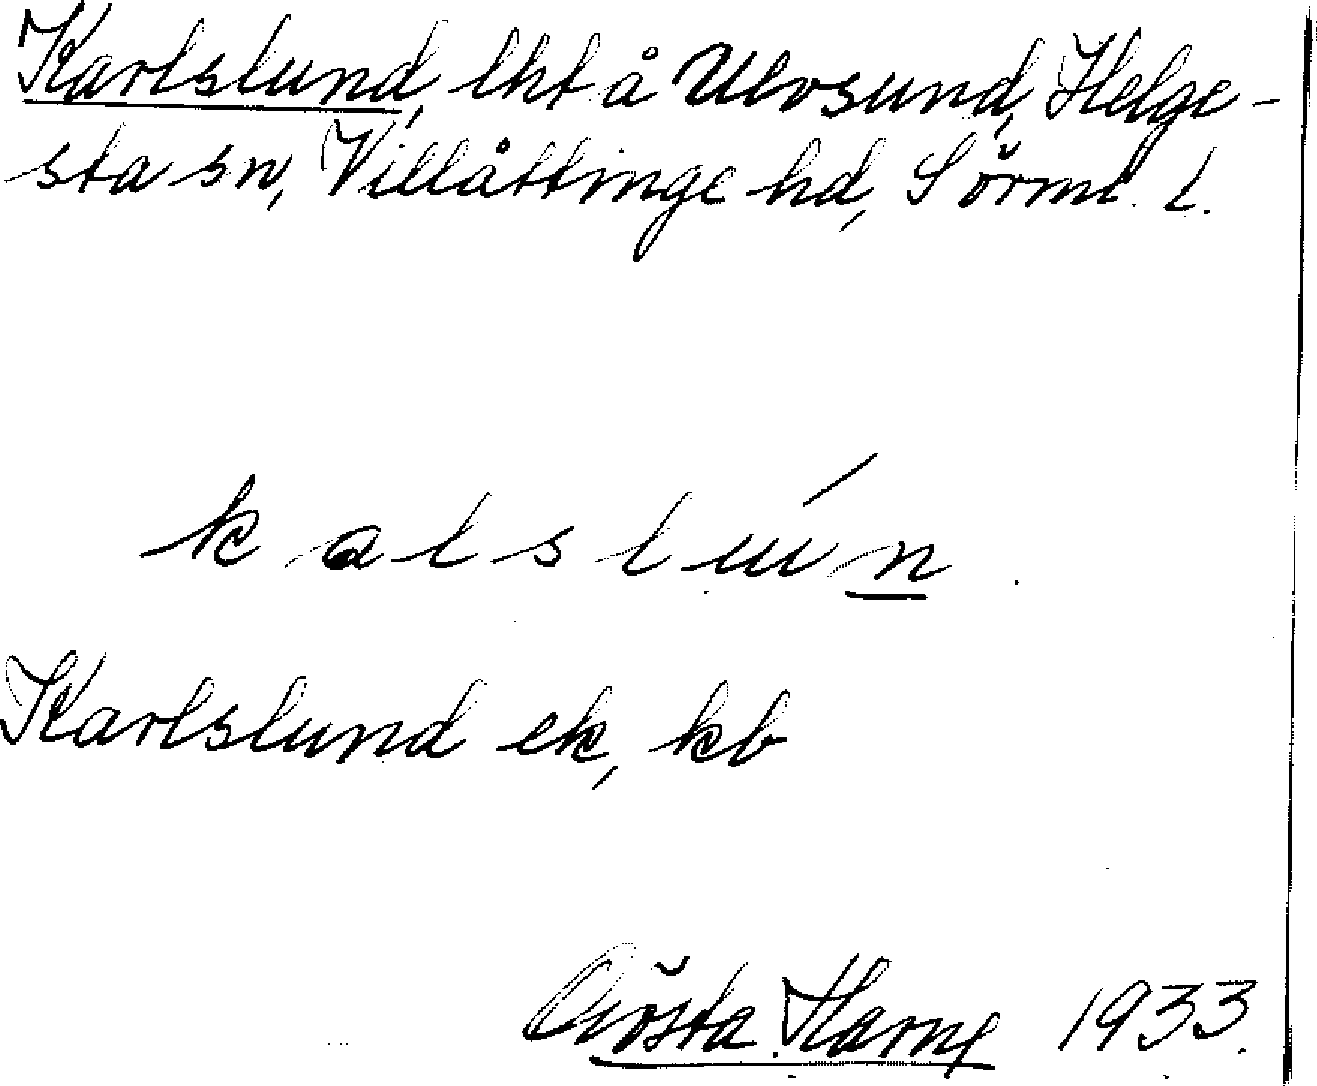 Karlslund, lht å Ulvsund, Helge-
sta sn, Villåttinge hd, Sörml. l.
kalslún
Karlslund ek, kb
Gösta Harne 1933.